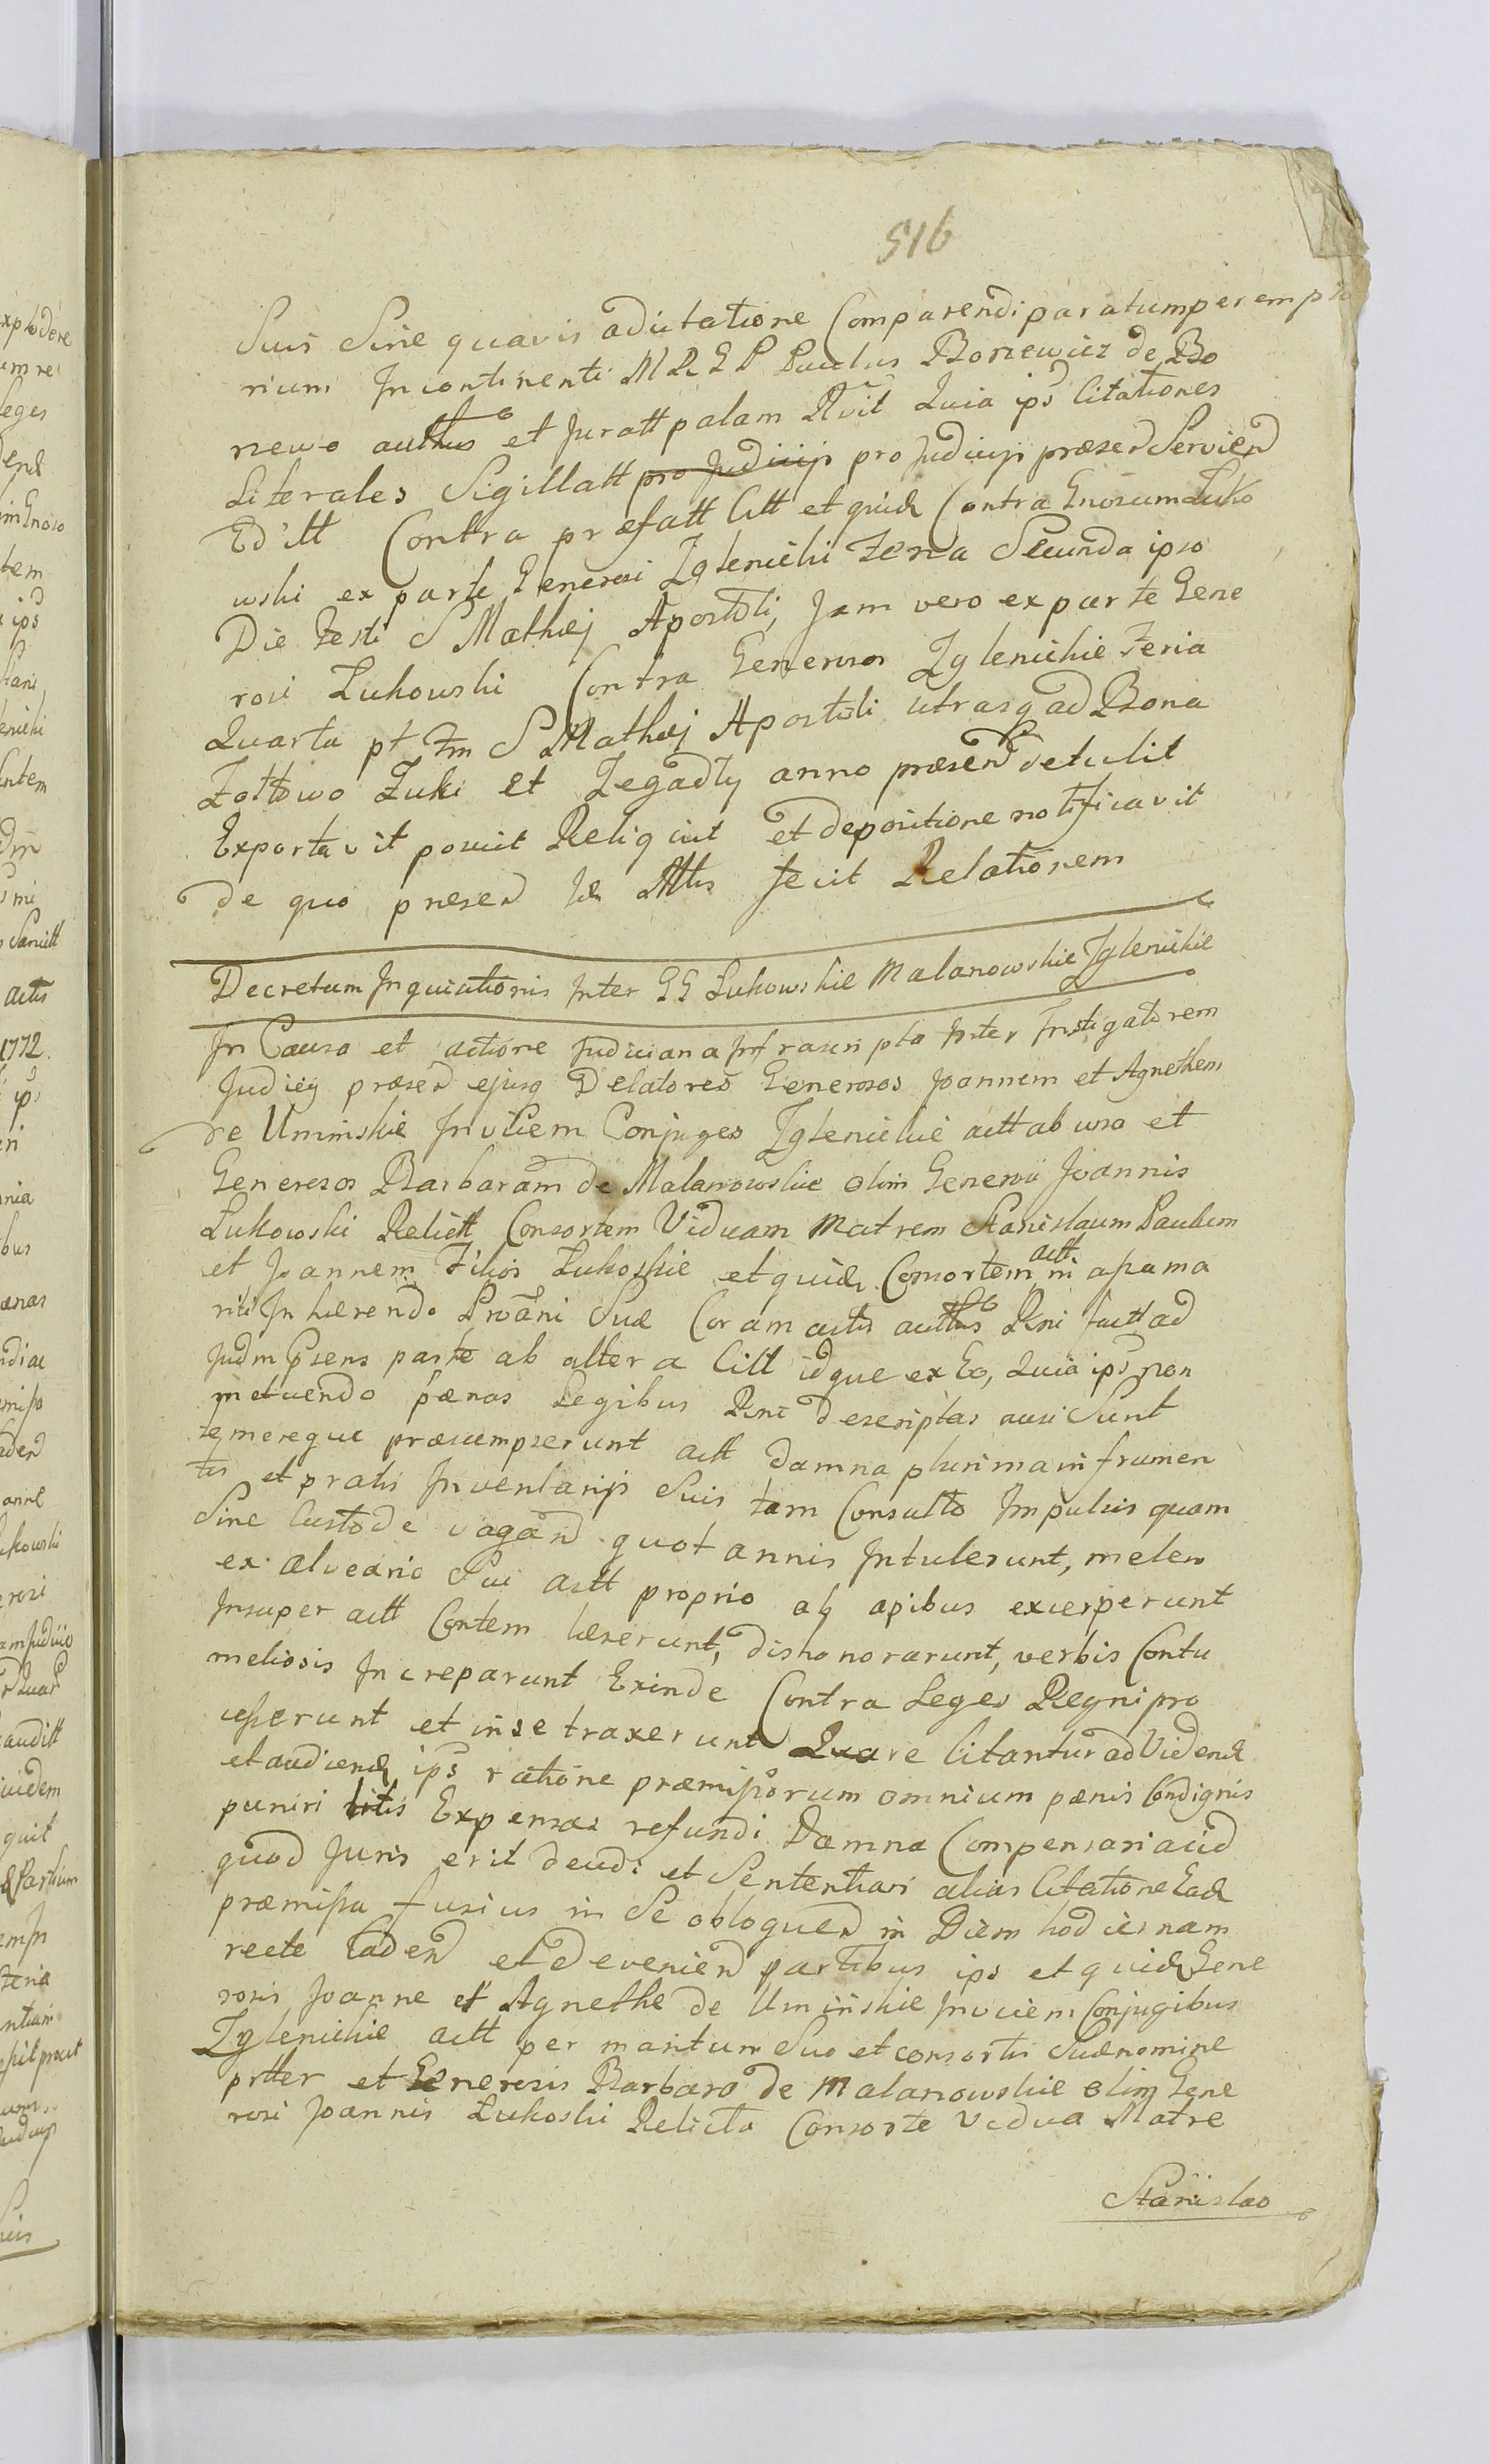 516
Suis Sine quavis adcitatione Comparendi paratum perempto
rium Incontinenti M R G P Paulus Borzewicz de Bo
rzewo autthus et Juratt palam Rvit Quia ips Citationes
Literales Sigillatt pro Judicijs pro Judicijs præsen Servien
Editt Contra præfatt Citt et quid Contra Gnosum Łuko
wski ex parte Generosi Zglenicki Feria Secunda ipso
Die Festi S Mathæj Apostoli, Jam vero ex parte Gene
rosi Łukowski Contra Generosos Zglenickie Feria
Quarta pt Fm S Mathæj Apostoli utrasq ad Bona
Zołtowo Łuki et Zegadły anno præsen detulit
Exportavit posuit Reliquit et depositione notificavit
de quo præsen se Attis fecit Relationem
Decretum Inquisitionis Inter GG Łukowskie Malanowskie Zglenickie
In Causa et actione Judiciana Infrascripta Inter Instigatorem
Judicij præsen ejusq Delatores Generosos Joannem et Agnethem
de Uminskie Invicem Conjuges Zglenickie actt ab una et
Generosos Barbaram de Malanowskie olim Generosi Joannis
Łukowski Relictt Consortem Viduam Matrem Stanislaum Paulum
et Joannem Filios Łukoskie et quid Consortem actt in assa ma
riti Inhærendo Proani Suæ Coram actis autthus Rni factt ad
Judm Psens parte ab altera Citt idque ex Eo, Quia ips non
metuendo pænas Legibus Rni descriptas ausi Sunt
temereque præsumpserunt actt damna plurima in frumen
tis et pratis Inventarijs Suis tam Consulto Impulsis quam
Sine Custode vagan quot annis Intulerunt, melem
ex alveario Sui actt proprio ab apibus excerperunt
Insuper actt Contem læserunt, dishonorarunt, verbis Contu
meliosis Increparunt Exinde Contra Leges Regni pro
cesserunt et in se traxerunt Quare Citantur ad Vidend
et audiend ips ratione præmissorum omnium pænis Condignis
puniri litis Expensas refundi Damna Compensari acid
quod Juris erit decidi et Sententiari alias Citatione Ead
præmissa fusius in Se obloquen in Diem hodiernam
recte Caden et devenien partibus ips et quid Gene
rosis Joanne et Agnethe de Uminskie Invicem Conjugibus
Zglenickie actt per maritum Suo et consortis Suæ nomine
prtter et Generosis Barbara de Malanowskie olim Gene
rosi Joannis Łukoski Relicta Consorte Vidua Matre
Stanislao